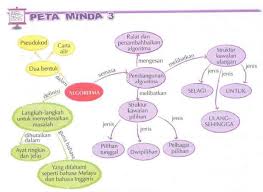 PETA MINDA 3
Pseudokod
Carta
alir
Dua bentuk
definisi
ALGORITMA
semasa
Langkah-langkah
untuk menyelesaikan
masalah
Ayat ringkas
dan jelas
Yang difahami
seperti bahasa Melayu
dan bahasa Inggeris
Ralat dan
penambahbaikan
algoritma
mengesan
Pembangunan
algoritma
melibatkan
melibatkan
Struktur
kawalan
ulangan
jenis
jenis
jenis
SELAGI
UNTUK
ULANG-
SEHINGGA
Struktur
kawalan
pilihan
jenis
jenis
jenis
Pilihan
tunggal
Dwipilihan
Pelbagai
pilihan